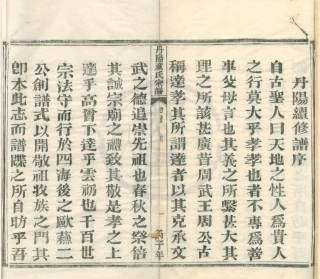 丹陽續修譜序
自古聖人曰天地之性人爲貴人
之行莫大乎孝孝也者不專爲善
事父母言也其義之所繫甚大其
理之所該甚廣昔周武王周公古
稱達孝其所謂達者以其克承文
丹陽 氏宗譜
武之德追崇先祖也春秋之祭倍
其誠宗廟之禮致其敬是孝之上
達乎高曾下達乎雲礽也千百世
宗法守而行於四海後之歐蘇二
公創譜式以開敬祖收族之門其
卽本此志而譜牒之所自助乎吾